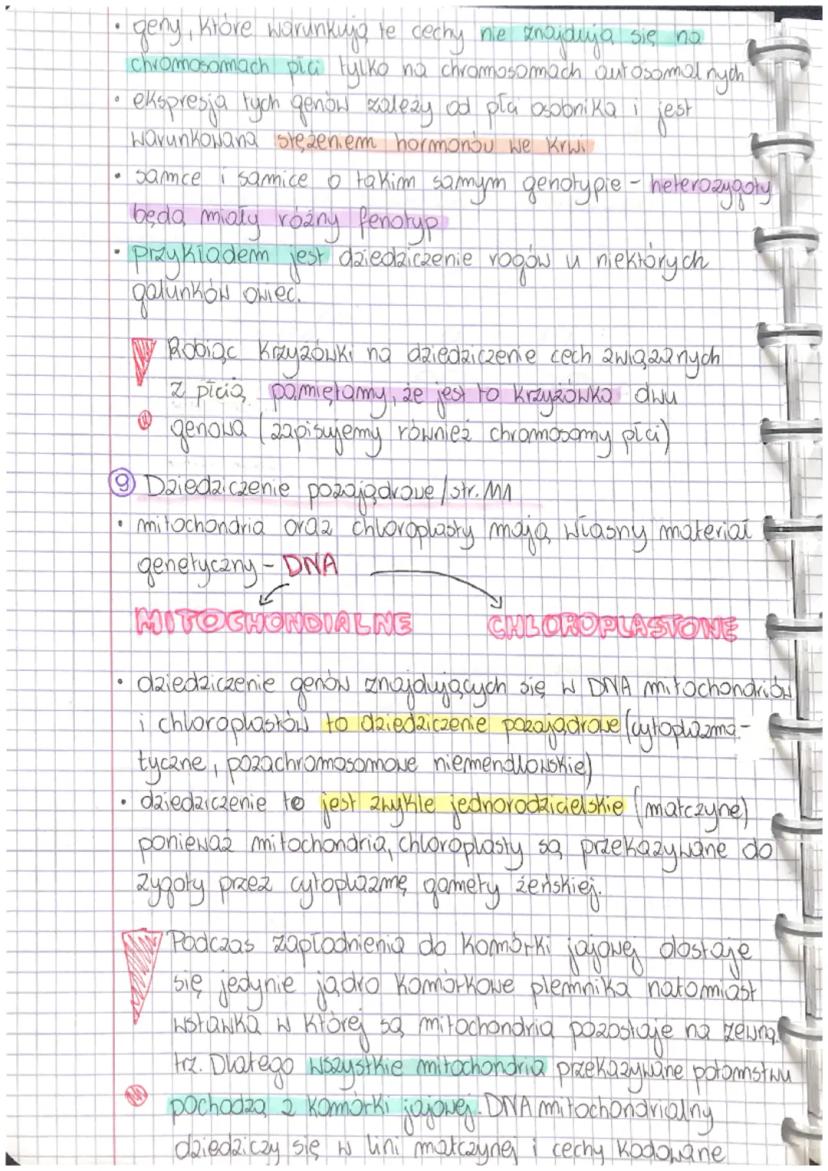 • geny, które warunkują te cechy nie znajdują się na
chromosomach płci tylko na chromosomach autosomalnych
• ekspresja tych genów zależy od płci osobnika i jest
warunkowana stężeniem hormonów we krwi
• samce i samice o takim samym genotypie - heterozygoty
będą miały różny fenotyp
• przykładem jest dziedziczenie rogów u niektórych
gatunków owiec.
Robiąc krzyżówki na dziedziczenie cech związanych
z płcią pamiętamy, że jest to krzyżówka dwu
genowa (zapisujemy również chromosomy płci)
9 Dziedziczenie pozajądrowe / str. 111
• mitochondria oraz chloroplasty mają własny materiał
genetyczny - DNA
MITOCHONDIALNE CHLOROPLASTONE
• dziedziczenie genów znajdujących się w DNA mitochondriów
i chloroplastów to dziedziczenie pozajądrowe (cytoplazma-
tyczne, pozachromosomowe niemendlowskie)
• dziedziczenie to jest zwykle jednorodzicielskie (matczyne)
ponieważ mitochondria, chloroplasty są przekazywane do
zygoty przez cytoplazmę gamety żeńskiej.
Podczas zapłodnienia do komórki jajowej dostaje
się jedynie jądro komórkowe plemnika natomiast
wstawka w której są mitochondria pozostaje na zewną.
trz. Dlatego wszystkie mitochondria przekazywane potomstwu
pochodzą z komórki jajowej. DNA mitochondrialny
dziedziczy się w lini matczynej i cechy kodowane